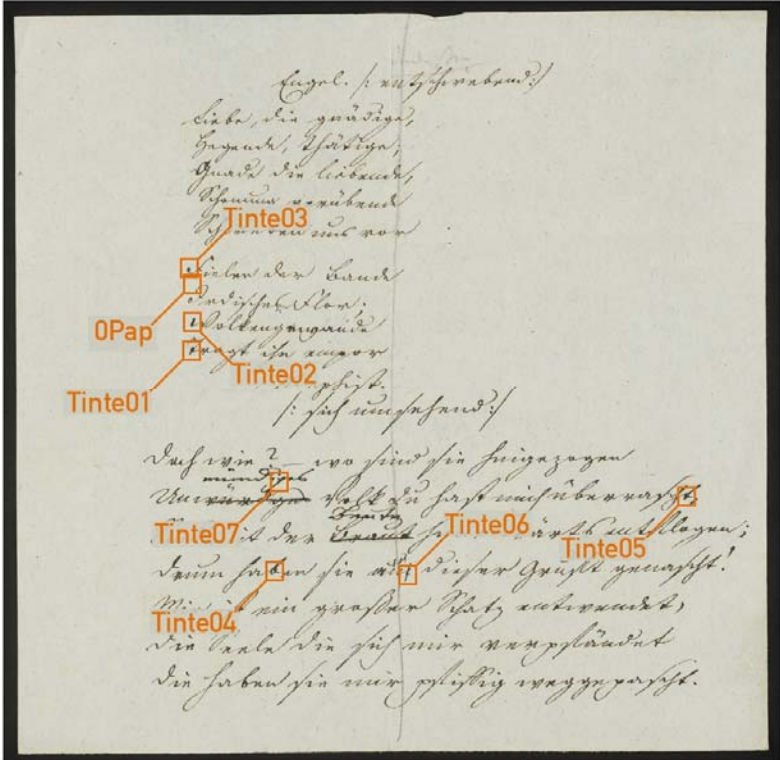 Engel. /: entschwebend :/
Liebe, die gnädige,
Hegende, thätige;
Gnade die liebende,
Schonung verübende
Schweben uns vor
Tinte03
Fielen der Bande
Irdischer Flor;
0Pap
Wolkengewande
Tinte02
Tragt ihn empor
Tinte01
/: sich umsehend :/
Doch wie? – wo sind sie hingezogen
mündiges
Unwürdges Volk du hast mich überrascht
Tinte07
Beute
mit der Braut entflogen;
Tinte06
Tinte05
Drum haben sie an dieser Gruft genascht!
Mir ist ein großer Schatz entwendet,
Tinte04
Die Seele die sich mir verpfändet
Die haben sie mir pfiffig weggepascht.